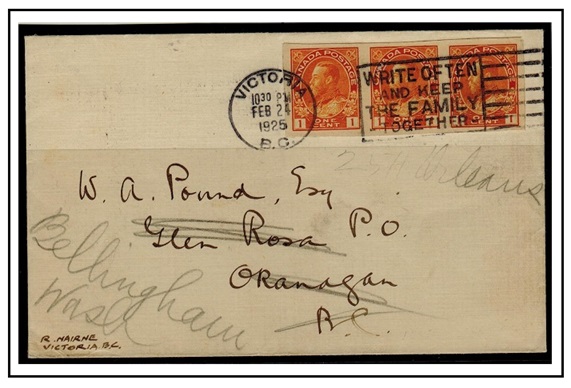 CANADA POSTAGE CANADA POSTAGE CANADA POSTAGE
1 ONE CENT 1 1 ONE CENT 1 1 ONE CENT 1
VICTORIA
10 30 PM
FEB 24
1925
B.C.
WRITE OFTEN
AND KEEP
THE FAMILY
TOGETHER
Orleans
W. A. Pound, Esq
Glen Rosa P.O.
Okanagan
B.C.
Bellingham
Wash
R. NAIRNE
VICTORIA. B.C.